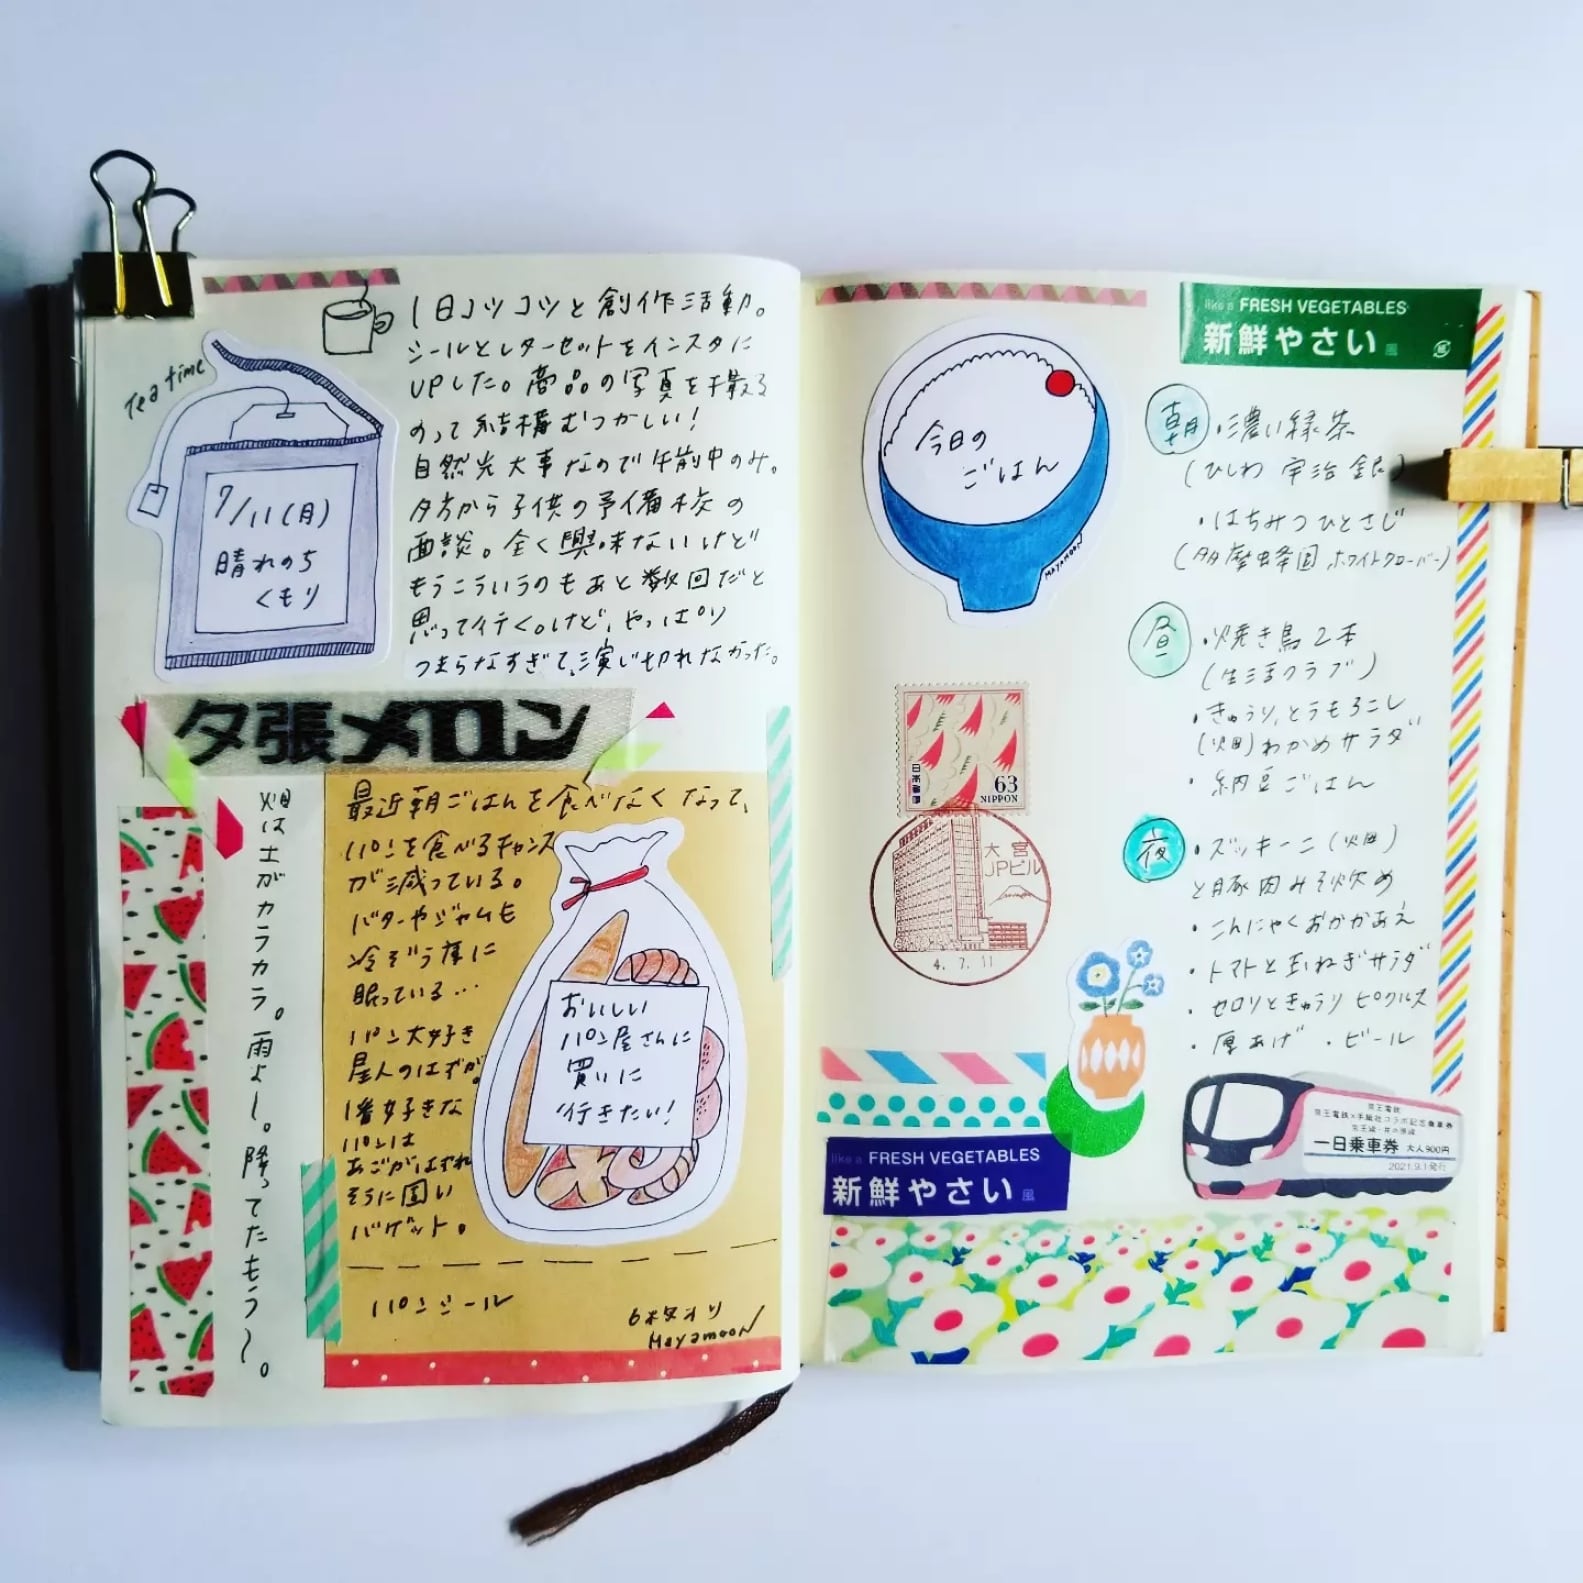 Tea time
7/11(月)
晴れのち
くもり
1日コツコツと創作活動。
シールとレターセットをインスタに
UPした。商品の写真を撮る
のって結構むつかしい!
自然光大事なので午前中のみ。
夕方から子供の予備校の
面談。全く興味ないけど
もうこういうのもあと数回だと
思って行く。けど、やっぱり
つまらなすぎて、演じ切れなかった。
夕張メロン
畑は土がカラカラ。雨よ〜。降ってたもう〜。
最近朝ごはんを食べなくなって、
パンを食べるチャンス
が減っている。
バターやジャムも
冷ぞう庫に
眠っている…
パン大好き
星人のはずが。
1番好きな
パンは
あごがはずれ
そうに固い
バゲット。
おいしい
パン屋さんに
買いに
行きたい!
パンシール
Mayamoon
今日の
ごはん
MAYAMOON
like a FRESH VEGETABLES
新鮮やさい風
朝・濃い緑茶
(ひしわ 宇治 銀)
・はちみつひとさじ
(多摩蜂園 ホワイトクローバー)
昼・焼き鳥2本
(生活クラブ)
・きゅうり、とうもろこし
(畑)わかめサラダ
・納豆ごはん
夜・ズッキーニ(畑)
と豚肉みそ炊め
・こんにゃくおかかあえ
・トマトと玉ねぎサラダ
・セロリときゅうりピクルス
・厚あげ ・ビール
日本郵便
63
NIPPON
大宮
JPビル
4.7.11
like a FRESH VEGETABLES
新鮮やさい風
京王電鉄
京王電鉄×手紙社コラボ記念乗車券
京王線・井の頭線
一日乗車券 大人900円
2021.9.1発行